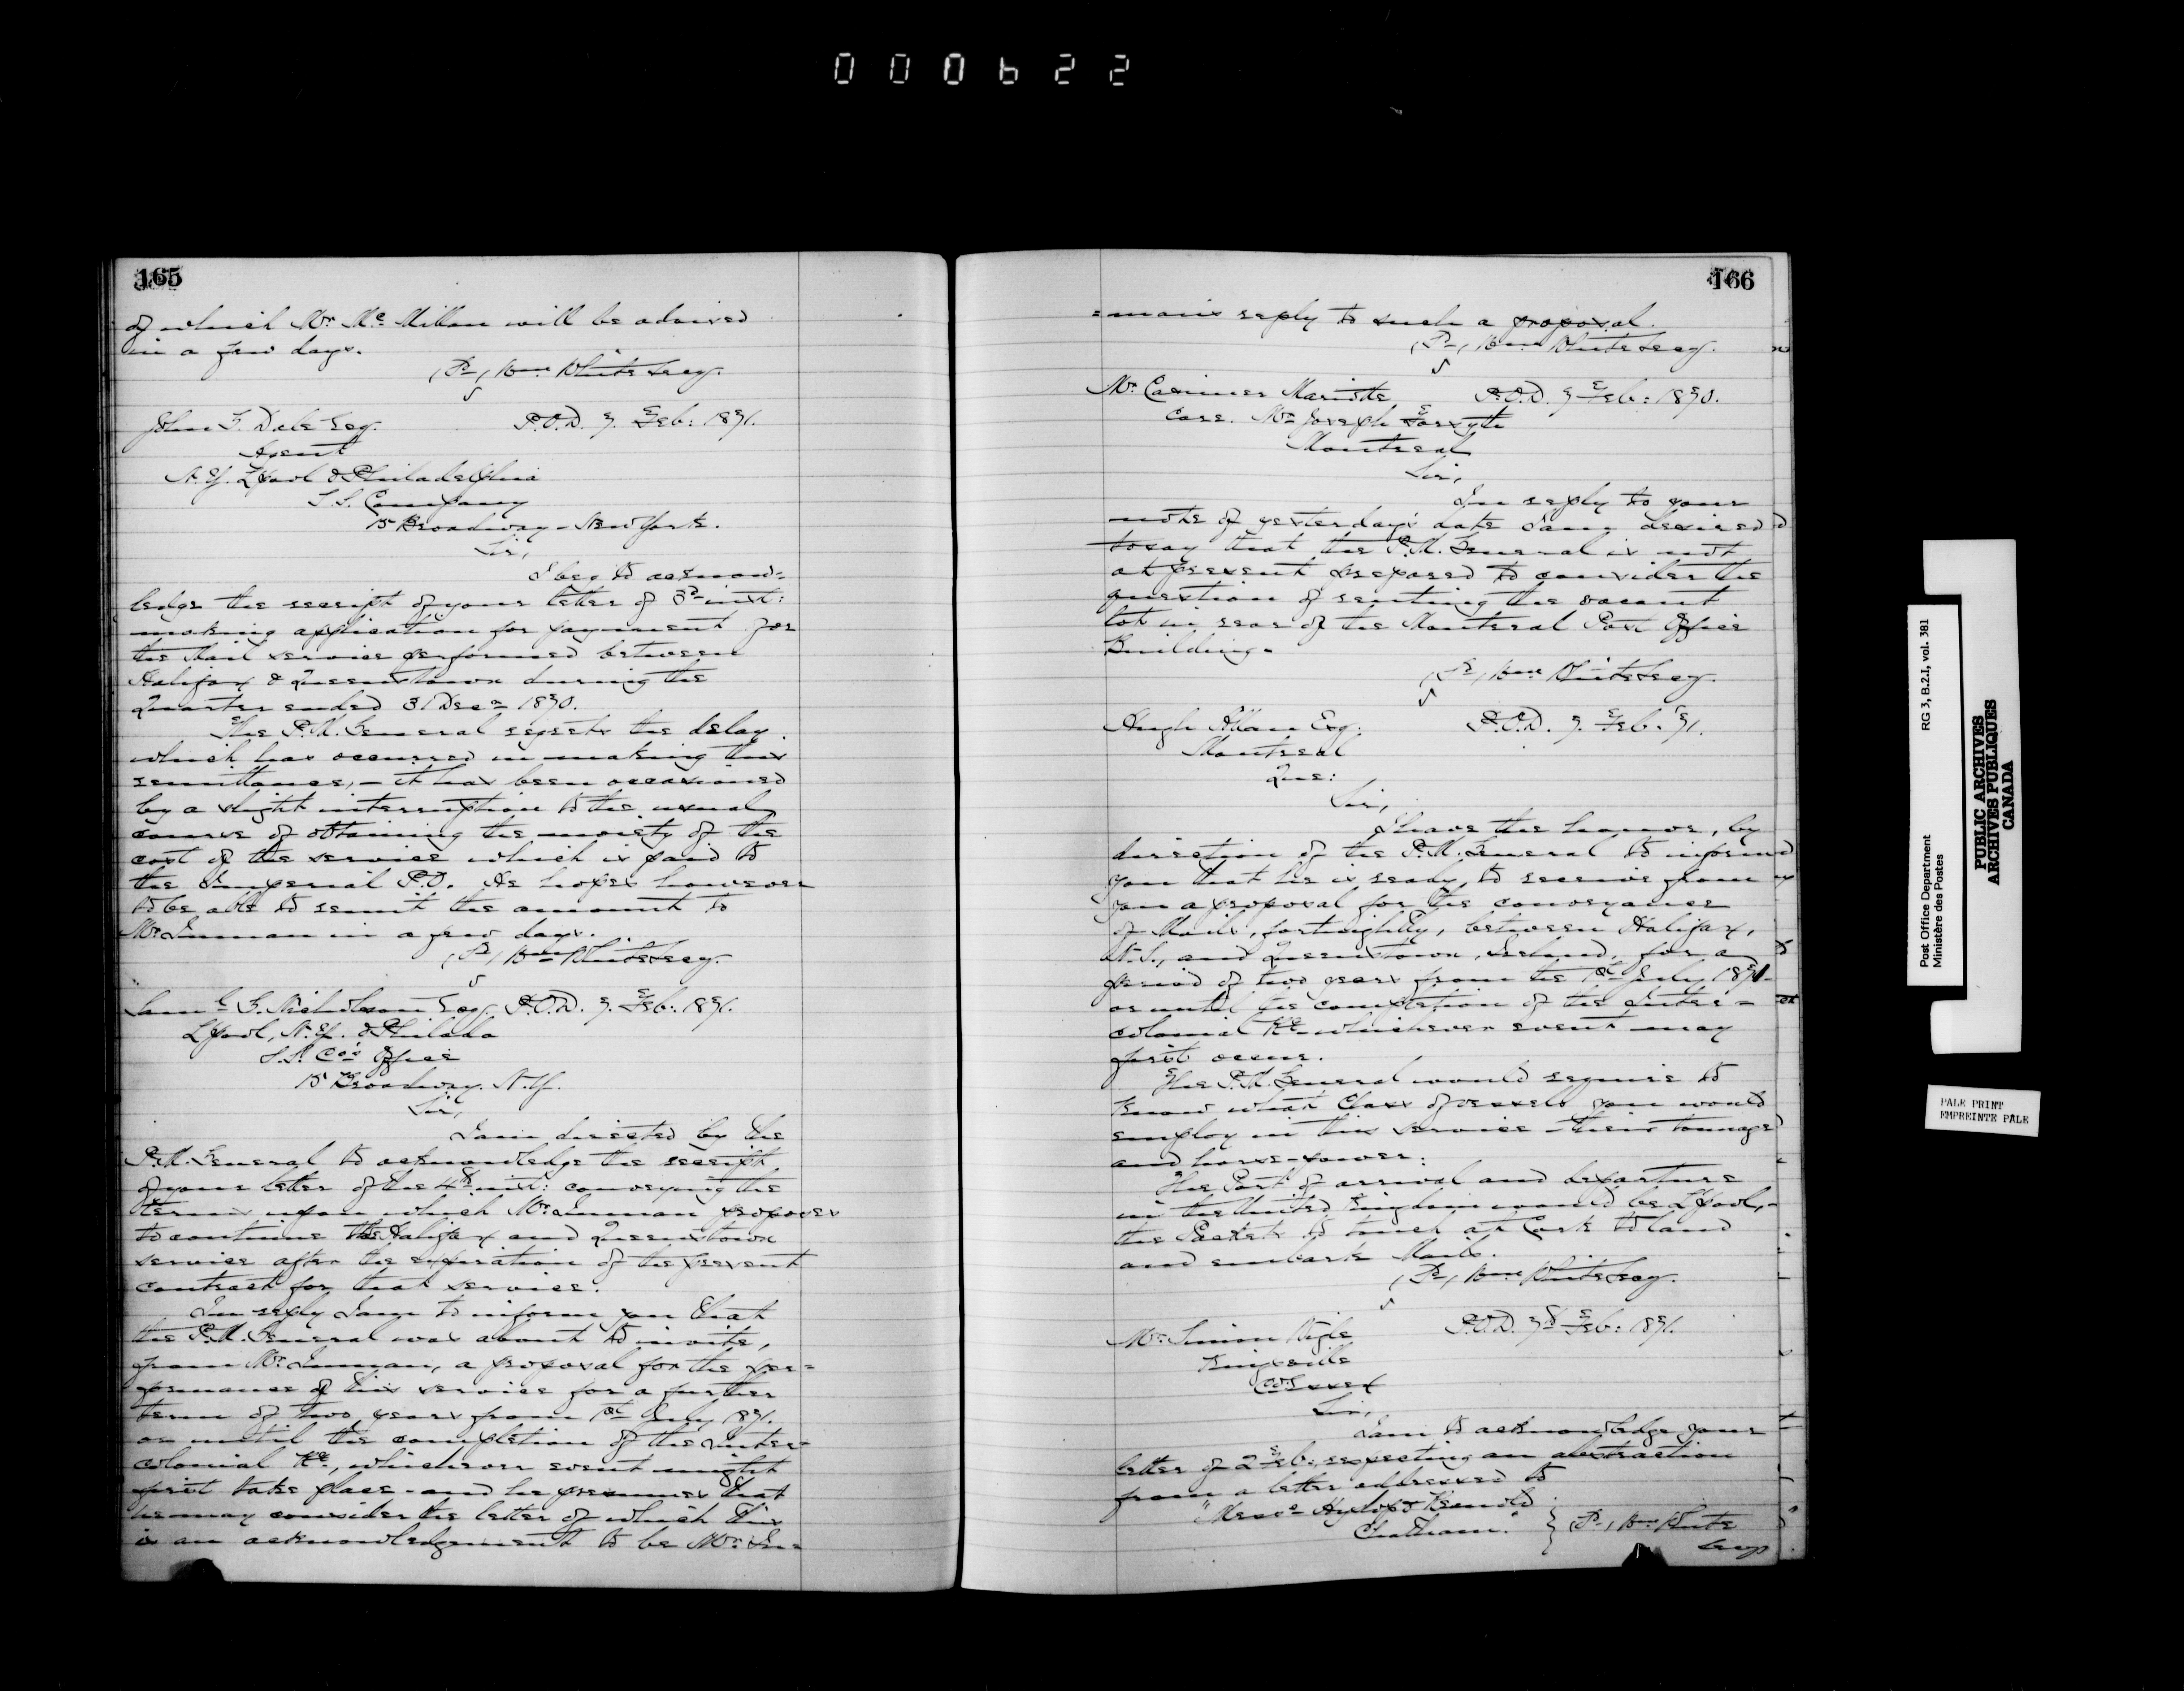 000622
165
of which Mr. McMillan will be advised
in a few days.
(Sd) Wm. White Secy.
John G. Dale Esq. P.O.D. 7. Feb: 1871.
Agent
N.Y. L'pool & Philadelphia
S.S. Company
15 Broadway - New York.
Sir,
I beg to acknow=
ledge the receipt of your letter of 3rd inst:
making application for payment for
the Mail service performed between
Halifax & Queenstown during the
Quarter ended 31 Decr 1870.
The P.M. General regrets the delay
which has occurred in making this
remittance, - it has been occasioned
by a slight interruption to the usual
course of obtaining the moiety of the
cost of the service which is paid to
the Imperial P.O. He hopes however
to be able to remit the amount to
Mr. Inman in a few days.
(Sd) Wm White Secy.
Saml. G. Nicholson Esq. P.O.D. 7. Feb: 1871.
L'pool, N.Y. & Philada
S.S. Co's Office
15 Broadway. N.Y.
Sir,
I am directed by the
P.M. General to acknowledge the receipt
of your letter of the 4th inst: conveying the
terms upon which Mr. Inman proposes
to continue the Halifax and Queenstown
service after the expiration of the present
contract for that service.
In reply I am to inform you that
the P.M. General was about to invite,
from Mr. Inman, a proposal for the per=
formance of this service for a further
term of two years from 1st July 1871.
or until the completion of the Inter=
colonial Ry., whichever event might
first take place - and he presumes that
he may consider the letter of which this
is an acknowledgement to be Mr. In=
166
=man's reply to such a proposal.
(Sd) Wm White Secy.
Mr. Casimer Mariotte P.O.D. 7 Feb: 1870.
Care. Mr Joseph Forsyth
Montreal
Sir,
In reply to your
note of yesterday's date I am desired
to say that the P.M. General is not
at present prepared to consider the
question of renting the vacant
lot in rear of the Montreal Post Office
Building.
(Sd) Wm White Secy.
Hugh Allan Esq. P.O.D. 7. Feb. '71.
Montreal
Que:
Sir,
I have the honor, by
direction of the P.M. General to inform
you that he is ready to receive from
you a proposal for the conveyance
of Mails, fortnightly, between Halifax,
N.S., and Queenstown, Ireland, for a
period of two years from the 1st July 1871.
or until the completion of the Inter=
colonial Ry whichever event may
first occur.
The P.M. General would require to
know what Class of vessels you would
employ in this service - their tonnage
and horse-power:
The Port of arrival and departure
in the United Kingdom would be L'pool, -
the Packets to touch at Cork to land
and embark Mails.
(Sd) Wm White Secy.
Mr. Simon P.O.D. 7th Feb: 1871.
Kingsville
Co Essex
Sir,
I am to acknowledge your
letter of 2 Feb. respecting an abstraction
from a letter addressed to
"Messrs Hyslop &
Chatham." } (Sd) Wm White
Secy
Post Office Department RG 3, B.2.1, vol. 381
Ministère des Postes
PUBLIC ARCHIVES
ARCHIVES PUBLIQUES
CANADA
PALE PRINT
EMPREINTE PALE